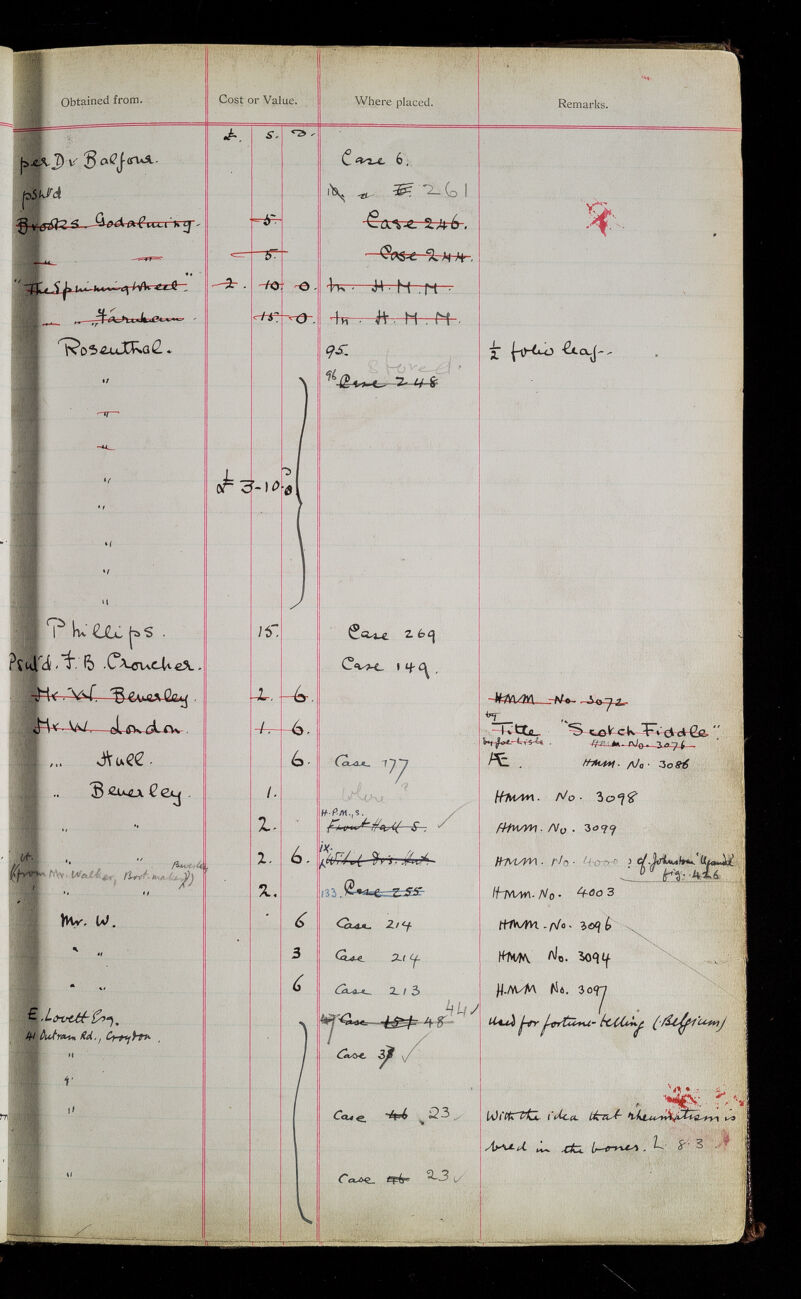 Obtained from. Cost or Value. Where placed. Remarks.
£. s. D.
per Dr Balfour. Case 6.
psh'd 261
Brooks. Godalming. 5. Case 246.
" " 5. Case 244.
"The Spinning Wheel". 2. 10. 0. In. H.H.M.
" " Farnham. 15. 0. In. H.H.M.
Rosenthal. 95. Stored. ½ folio leaf.
" 96 Case 248
"
"
" £3-10.0
"
"
"
"
Phillips. 15. Case 269
Psh'd. F. B. Croucher. Case 149.
Mr. W. Beverley. 2. 6. HMM No. 3072
Mr. W. London. 1. 6. Title "Scotch Fiddle".
HMM. No. 3076
" Hull. 6. Case 177 HMM. No. 3086
" Beverley. 1. Where? HMM. No. 3098
" " 2. H.P.M., S. Front Hall S. ✓ HMM. No. 3099
" " 2. 6. ix. HMM. No. 4000 ? cf. Johnston "Uganda"
(from Mr. Walker, Boot-maker, Beverley) fig. 426
" " 2. 133. Case 255 HMM. No. 4003
Mr. W. 6 Case 214 HMM. No. 3096
" " 3 Case 214 HMM No. 3094
" " 6 Case 213 H.MM No. 3097
E. Lovett Esq. 47 Case 151 48 44 ✓ Used for fortune-telling (Belgium)
41 Outram Rd., Croydon.
" Case 38 ✓
"
" Case 46 23 ✓ With the idea that rheumatism is
bred in the bones. L 8 3
" Case 46 23 ✓